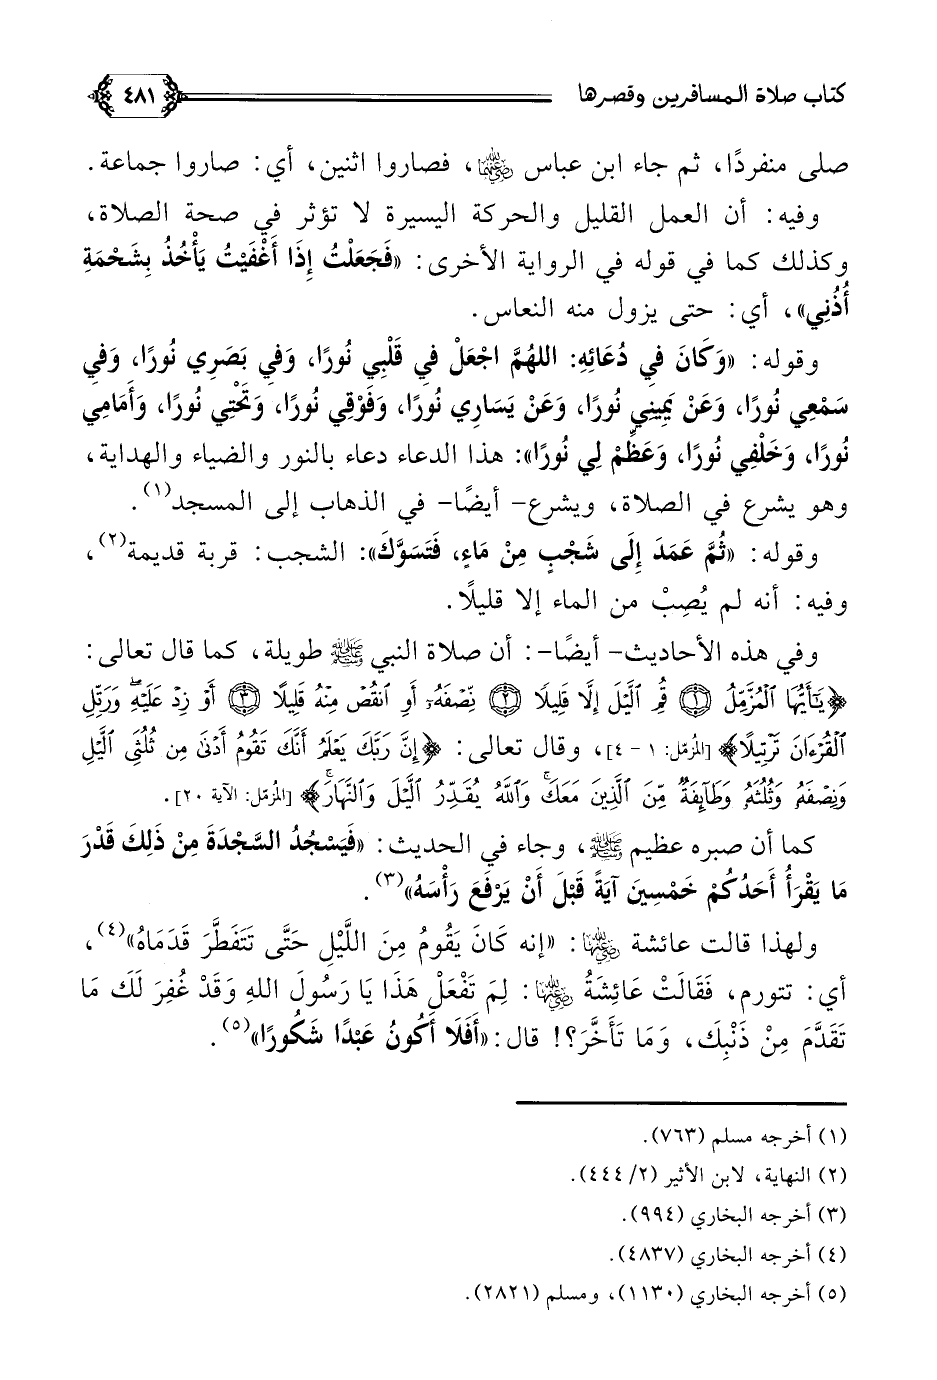 كتاب صلاة المسافرين وقصرها ٤٨١
صلى منفردًا، ثم جاء ابن عباس رضي الله عنهما، فصاروا اثنين، أي: صاروا جماعة.
وفيه: أن العمل القليل والحركة اليسيرة لا تؤثر في صحة الصلاة،
وكذلك كما في قوله في الرواية الأخرى: «فَجَعَلْتُ إِذَا أَغْفَيْتُ يَأْخُذُ بِشَحْمَةِ
أُذُنِي»، أي: حتى يزول منه النعاس.
وقوله: «وَكَانَ فِي دُعَائِهِ: اللهُمَّ اجْعَلْ فِي قَلْبِي نُورًا، وَفِي بَصَرِي نُورًا، وَفِي
سَمْعِي نُورًا، وَعَنْ يَمِينِي نُورًا، وَعَنْ يَسَارِي نُورًا، وَفَوْقِي نُورًا، وَتَحْتِي نُورًا، وَأَمَامِي
نُورًا، وَخَلْفِي نُورًا، وَعَظِّمْ لِي نُورًا»: هذا الدعاء دعاء بالنور والضياء والهداية،
وهو يشرع في الصلاة، ويشرع- أيضًا- في الذهاب إلى المسجد(١).
وقوله: «ثُمَّ عَمَدَ إِلَى شَجْبٍ مِنْ مَاءٍ، فَتَسَوَّكَ»: الشجب: قربة قديمة(٢)،
وفيه: أنه لم يُصِبْ من الماء إلا قليلًا.
وفي هذه الأحاديث- أيضًا-: أن صلاة النبي ﷺ طويلة، كما قال تعالى:
﴿يَٰٓأَيُّهَا ٱلْمُزَّمِّلُ ١ قُمِ ٱلَّيْلَ إِلَّا قَلِيلًا ٢ نِّصْفَهُۥٓ أَوِ ٱنقُصْ مِنْهُ قَلِيلًا ٣ أَوْ زِدْ عَلَيْهِ وَرَتِّلِ
ٱلْقُرْءَانَ تَرْتِيلًا﴾ [المُزمّل: ١ - ٤]، وقال تعالى: ﴿إِنَّ رَبَّكَ يَعْلَمُ أَنَّكَ تَقُومُ أَدْنَىٰ مِن ثُلُثَيِ ٱلَّيْلِ
وَنِصْفَهُۥ وَثُلُثَهُۥ وَطَآئِفَةٌ مِّنَ ٱلَّذِينَ مَعَكَ وَٱللَّهُ يُقَدِّرُ ٱلَّيْلَ وَٱلنَّهَارَ﴾ [المُزمّل: الآية ٢٠].
كما أن صبره عظيم ﷺ، وجاء في الحديث: «فَيَسْجُدُ السَّجْدَةَ مِنْ ذَلِكَ قَدْرَ
مَا يَقْرَأُ أَحَدُكُمْ خَمْسِينَ آيَةً قَبْلَ أَنْ يَرْفَعَ رَأْسَهُ»(٣).
ولهذا قالت عائشة رضي الله عنها: «إنه كَانَ يَقُومُ مِنَ اللَّيْلِ حَتَّى تَتَفَطَّرَ قَدَمَاهُ»(٤)،
أي: تتورم، فَقَالَتْ عَائِشَةُ رضي الله عنها: لِمَ تَفْعَلْ هَذَا يَا رَسُولَ اللهِ وَقَدْ غُفِرَ لَكَ مَا
تَقَدَّمَ مِنْ ذَنْبِكَ، وَمَا تَأَخَّرَ؟! قال: «أَفَلَا أَكُونُ عَبْدًا شَكُورًا»(٥).
(١) أخرجه مسلم (٧٦٣).
(٢) النهاية، لابن الأثير (٢/ ٤٤٤).
(٣) أخرجه البخاري (٩٩٤).
(٤) أخرجه البخاري (٤٨٣٧).
(٥) أخرجه البخاري (١١٣٠)، ومسلم (٢٨٢١).